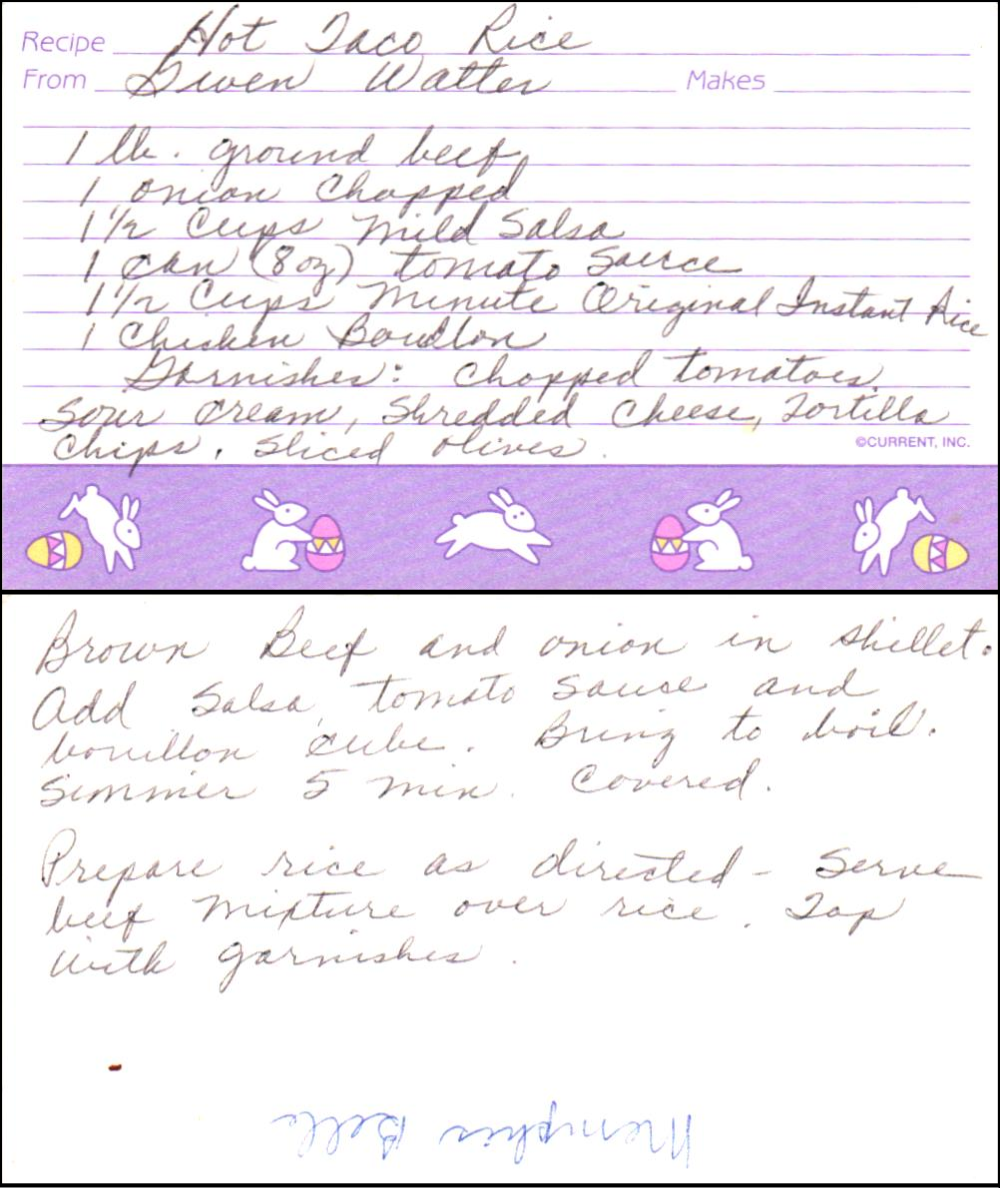 Recipe Hot Taco Rice
From Gwen Watter Makes
1 lb. ground beef
1 onion Chopped
1 1/2 Cups Mild Salsa
1 can (8 oz) tomato Sauce
1 1/2 Cups Minute Original Instant Rice
1 Chicken Boullon
Garnishes: Chopped tomatoes
Sour Cream, Shredded Cheese, Tortilla
Chips, Sliced Olives.
©CURRENT, INC.
Brown Beef and onion in skillet.
Add Salsa, tomato sauce and
bouillon cube. Bring to boil.
Simmer 5 min. Covered.
Prepare rice as directed - Serve
beef mixture over rice. Top
with garnishes.
Memphis Belle